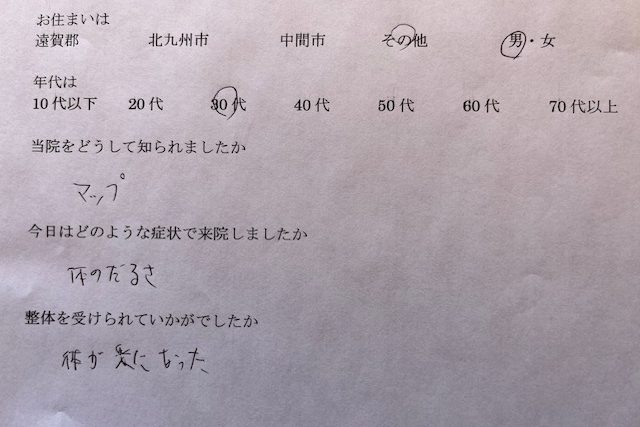 お住まいは
遠賀郡 北九州市 中間市 その他 男・女
年代は
10代以下 20代 30代 40代 50代 60代 70代以上
当院をどうして知られましたか
マップ
今日はどのような症状で来院しましたか
体のだるさ
整体を受けられていかがでしたか
体が楽になった